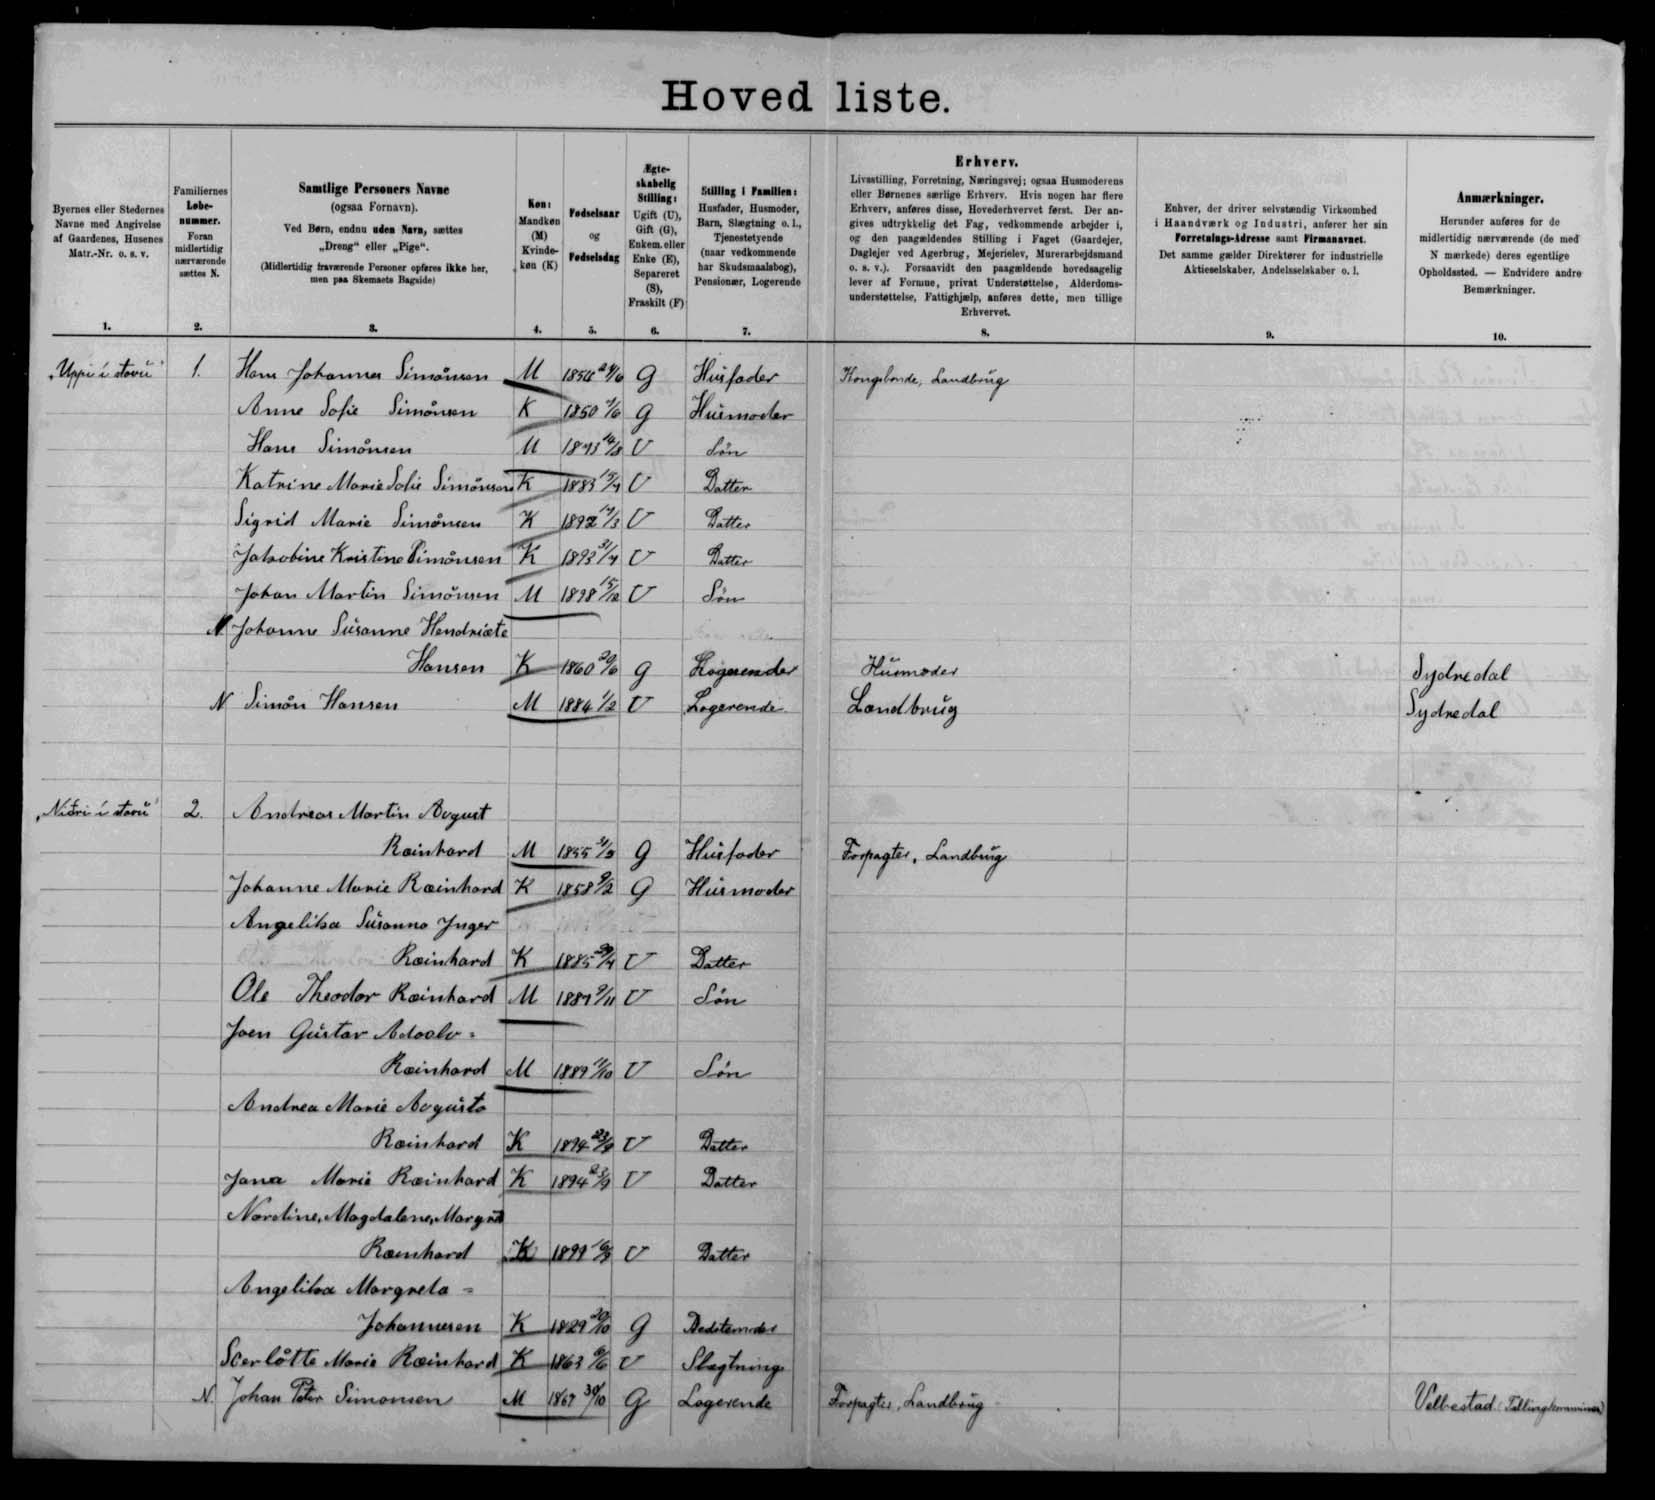 Hovedliste.
Byernes eller Stedernes
Navne med Angivelse
af Gaardenes, Husenes
Matr.-Nr. o. s. v.
1.
Familiernes
Løbe-
nummer.
Foran
midlertidig
nærværende
sættes N.
2.
Samtlige Personers Navne
(ogsaa Fornavn).
Ved Børn, endnu uden Navn, sættes
„Dreng“ eller „Pige“.
(Midlertidig fraværende Personer opføres ikke her,
men paa Skemaets Bagside)
3.
Køn:
Mandkøn
(M)
Kvinde-
køn (K)
4.
Fødselsaar
og
Fødselsdag
5.
Ægte-
skabelig
Stilling:
Ugift (U),
Gift (G),
Enkem. eller
Enke (E),
Separeret
(S),
Fraskilt (F)
6.
Stilling i Familien:
Husfader, Husmoder,
Barn, Slægtning o. l.,
Tjenestetyende
(naar vedkommende
har Skudsmaalsbog),
Pensionær, Logerende
7.
Erhverv.
Livsstilling, Forretning, Næringsvej; ogsaa Husmoderens
eller Børnenes særlige Erhverv. Hvis nogen har flere
Erhverv, anføres disse, Hovederhvervet først. Der an-
gives udtrykkelig det Fag, vedkommende arbejder i,
og den paagældendes Stilling i Faget (Gaardejer,
Daglejer ved Agerbrug, Mejerielev, Murerarbejdsmand
o. s. v.). Forsaavidt den paagældende hovedsagelig
lever af Formue, privat Understøttelse, Alderdoms-
understøttelse, Fattighjælp, anføres dette, men tillige
Erhvervet.
8.
Enhver, der driver selvstændig Virksomhed
i Haandværk og Industri, anfører her sin
Forretnings-Adresse samt Firmanavnet.
Det samme gælder Direktører for industrielle
Aktieselskaber, Andelsselskaber o. l.
9.
Anmærkninger.
Herunder anføres for de
midlertidig nærværende (de med
N mærkede) deres egentlige
Opholdssted. — Endvidere andre
Bemærkninger.
10.
„Uppi í stovu“ 1. Hans Johannes Simonsen M G Husfader Kongsbonde, Landbrug
Anne Sofie Simonsen K 1850 G Husmoder
Hans Simonsen M U Søn
Katrine Marie Sofie Simonsen K 1883 U Datter
Sigrid Marie Simonsen K 1892 U Datter
Jakobine Kristine Simonsen K U Datter
Johan Martin Simonsen M 1898 15/12 U Søn
N Johanne Susanne Hendriæte
Hansen K 1860 G Logerender Husmoder Sydredal
N Simon Hansen M 1884 1/2 U Logerende Landbrug Sydredal
„Niðri í stovu“ 2. Andreas Martin Avgust
Ræinhard M 1855 G Husfader Forpagter, Landbrug
Johanne Marie Ræinhard K 1858 9/2 G Husmoder
Angelika Susanna Inger
Ræinhard K 1885 U Datter
Ole Theodor Ræinhard M 1887 9/11 U Søn
Joen Gustav Adoolv =
Ræinhard M 1889 11/10 U Søn
Andrea Marie Avgusta
Ræinhard K 1894 23/9 U Datter
Jana Marie Ræinhard K 1894 23/9 U Datter
Nordine, Magdalene, Margret
Ræinhard K 1899 U Datter
Angelika Margreta =
Johannesen K 1829 20/10 G Bedstemoder
Scerlotte Marie Ræinhard K 1863 6/6 U Slægtninge
N. Johan Peter Simonsen M 30/10 G Logerende Forpagter, Landbrug Velbestad